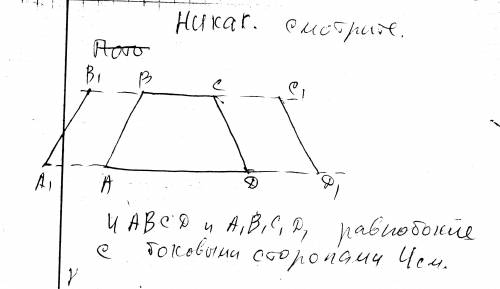 Никак. смотрите.
B₁ B C C₁
A₁ A D D₁
и ABCD и A₁B₁C₁D₁ равнобокие
с боковыми сторонами 4 см.